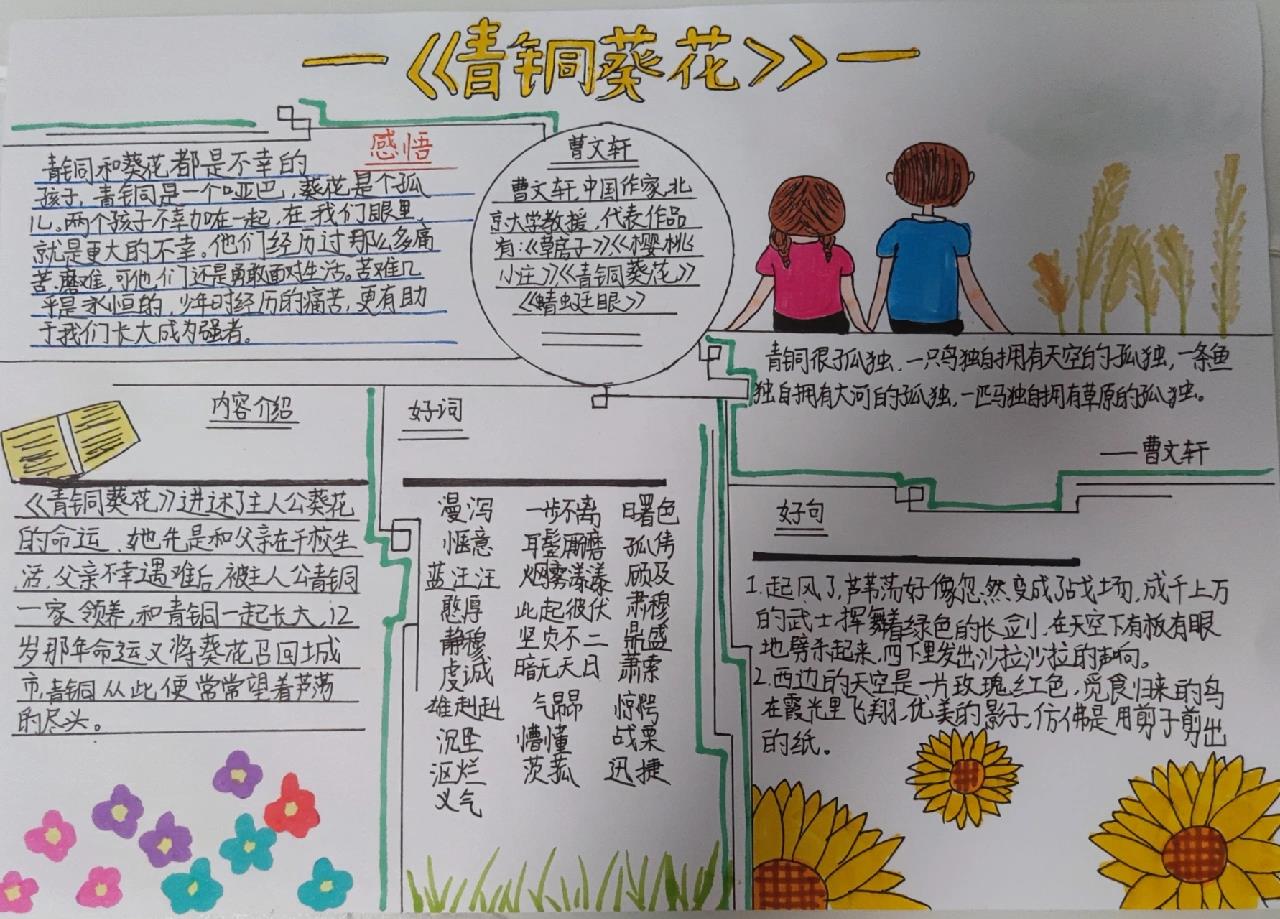 《青铜葵花》
感悟
青铜和葵花都是不幸的
孩子，青铜是一个哑巴，葵花是个孤
儿。两个孩子不幸加在一起，在我们眼里，
就是更大的不幸。他们经历过那么多痛
苦、磨难，可他们还是勇敢面对生活。苦难几
乎是永恒的，少年时经历的痛苦，更有助
于我们长大成为强者。
曹文轩
曹文轩，中国作家，北
京大学教授，代表作品
有：《草房子》《樱桃
小庄》《青铜葵花》
《蜻蜓眼》
青铜很孤独，一只鸟独自拥有天空的孤独，一条鱼
独自拥有大河的孤独，一匹马独自拥有草原的孤独。
——曹文轩
内容介绍
《青铜葵花》讲述了主人公葵花
的命运，她先是和父亲在干校生
活，父亲不幸遇难后，被主人公青铜
一家领养，和青铜一起长大，12
岁那年命运又将葵花召回城
市，青铜从此便常常望着芦荡
的尽头。
好词
漫泻 一步不离 日暮色
惬意 耳鬓厮磨 孤伟
蓝汪汪 烟雾漾漾 顾及
憨厚 此起彼伏 肃穆
静穆 坚贞不二 鼎盛
虔诚 暗无天日 萧索
雄赳赳 气昂昂 惊愕
沉坠 懵懂 战栗
沤烂 茨菰 迅捷
义气
好句
1.起风了，芦苇荡好像忽然变成了战场，成千上万
的武士，挥舞着绿色的长剑，在天空下有板有眼
地劈杀起来，四下里发出沙拉沙拉的声响。
2.西边的天空是一片玫瑰红色，觅食归来的鸟
在霞光里飞翔，优美的影子，仿佛是用剪子剪出
的纸。